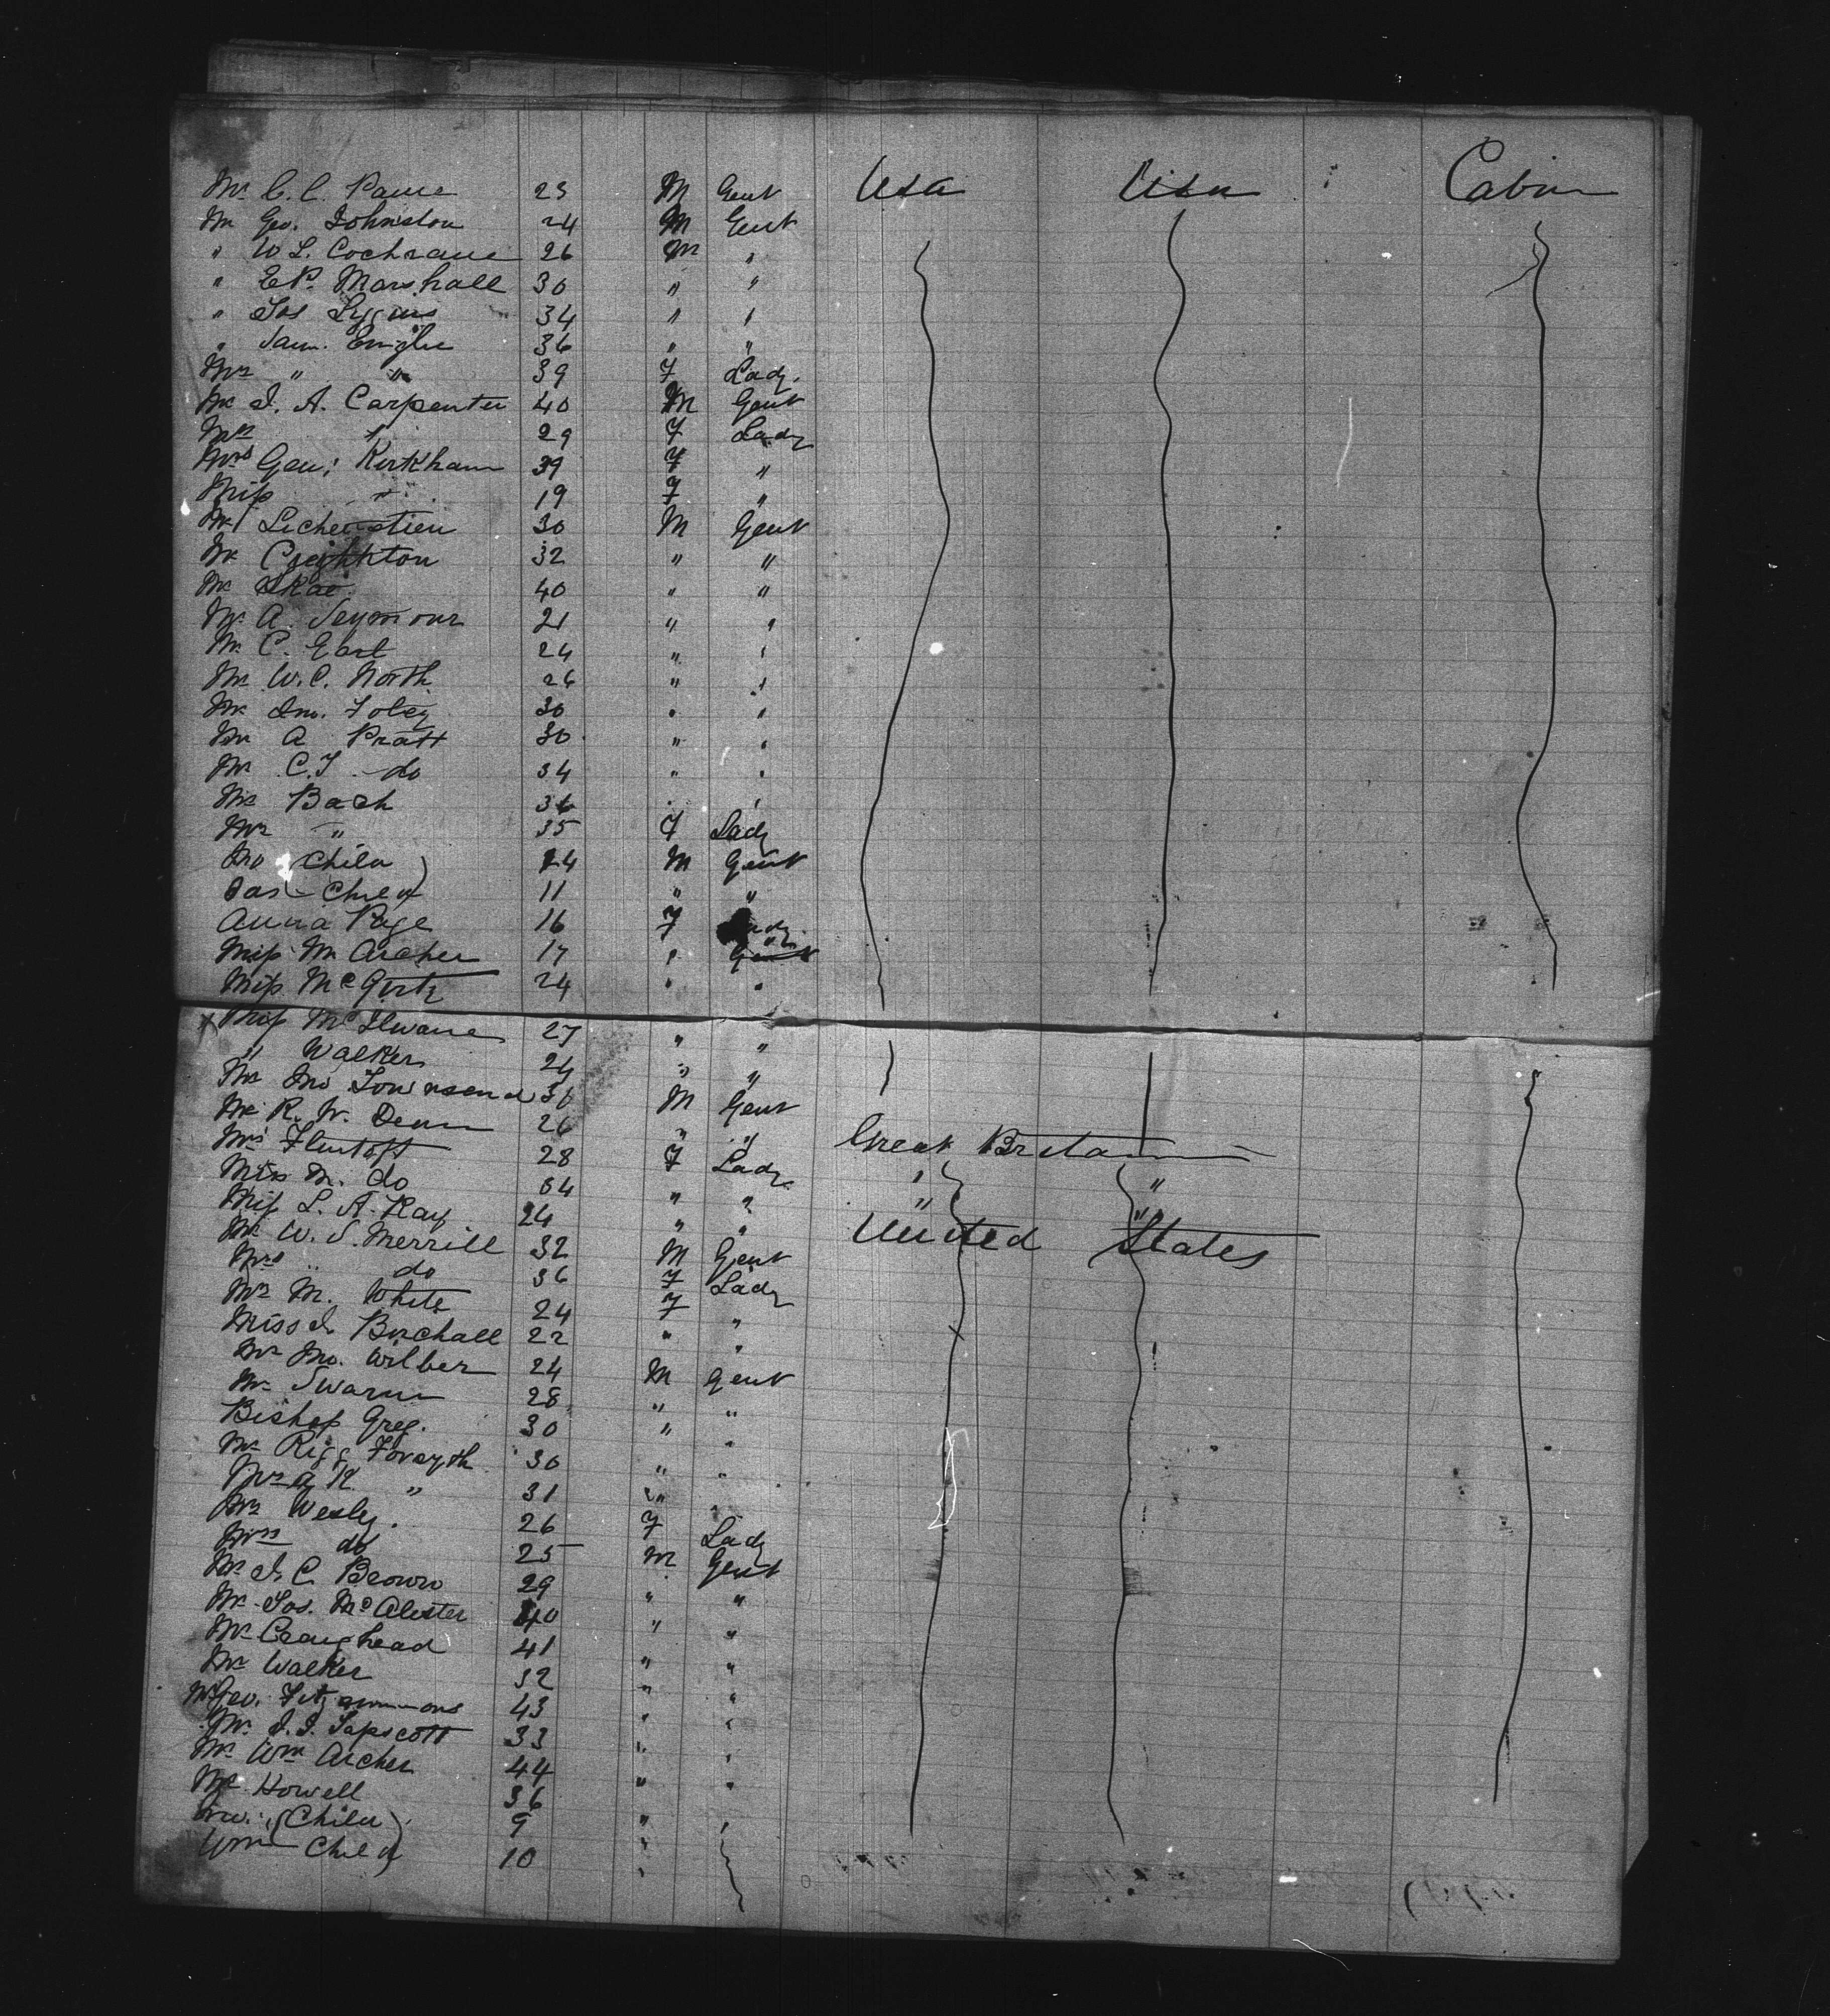 Mr C. C. Paure 23 M Gent Usa Usa Cabin
Mr Geo. Johnston 24 M Gent
" W L. Cochrane 26 M "
" E P. Marshall 30 " "
" Jos 34 " "
" Sam. 36 " "
Mrs " " 39 F Lady.
Mr J. A. Carpenter 40 M Gent
Mrs " 29 F Lady
Mrs Gen; Kirkham 39 F "
Miss " 19 F "
Mr Lichenstien 30 M Gent
Mr Creighkton 32 " "
Mr 40 " "
Mr A. Seymour 21 " "
Mr C. East 24 " "
Mr W. C. North 26 " "
Mr Jno. Foley 30 " "
Mr A Pratt 30 " "
Mr C. T do 34 " "
Mr Bach 36 " "
Mrs " 35 F Lady
Jno (Child) 14 M Gent
Jas (Child) 11 " "
Anna Page 16 F Lady
Miss M Archer 17 " Gent
Miss McGirk 24 " "
x Miss McIlwane 27 " "
" Walker 24 " "
Mr Jno Townsend 36 M Gent
Mr R. W. Denn 26 " "
Mrs Flentoff 28 F Lady Great Britain
Miss M. do 34 " " " "
Miss L. A. Ray 24 " " " "
Mr W. S. Merrill 32 M Gent United States
Mrs " do 36 F Lady
Mrs M. White 24 F "
Miss J. Birchall 22 " "
Mr Jno. Wilber 24 M Gent
Mr Swarm 28 " "
Bishop Greg. 30 " "
Mr Rigg Forsyth 30 " "
" 31 " "
Mr Wesley. 26 F Lady
Mrs do 25 M Gent
Mr J. C. Brown 29 " "
Mr Jos. McAlester 40 " "
Mr Craighead 41 " "
Mr Walker 32 " "
Mr Geo. Fitzsimmons 43 " "
Mr. J. J. Tapscott 33 " "
Mr Wm Archer 44 " "
Mr Howell 36 " "
(Child) 9 " "
Wm Child) 10 "